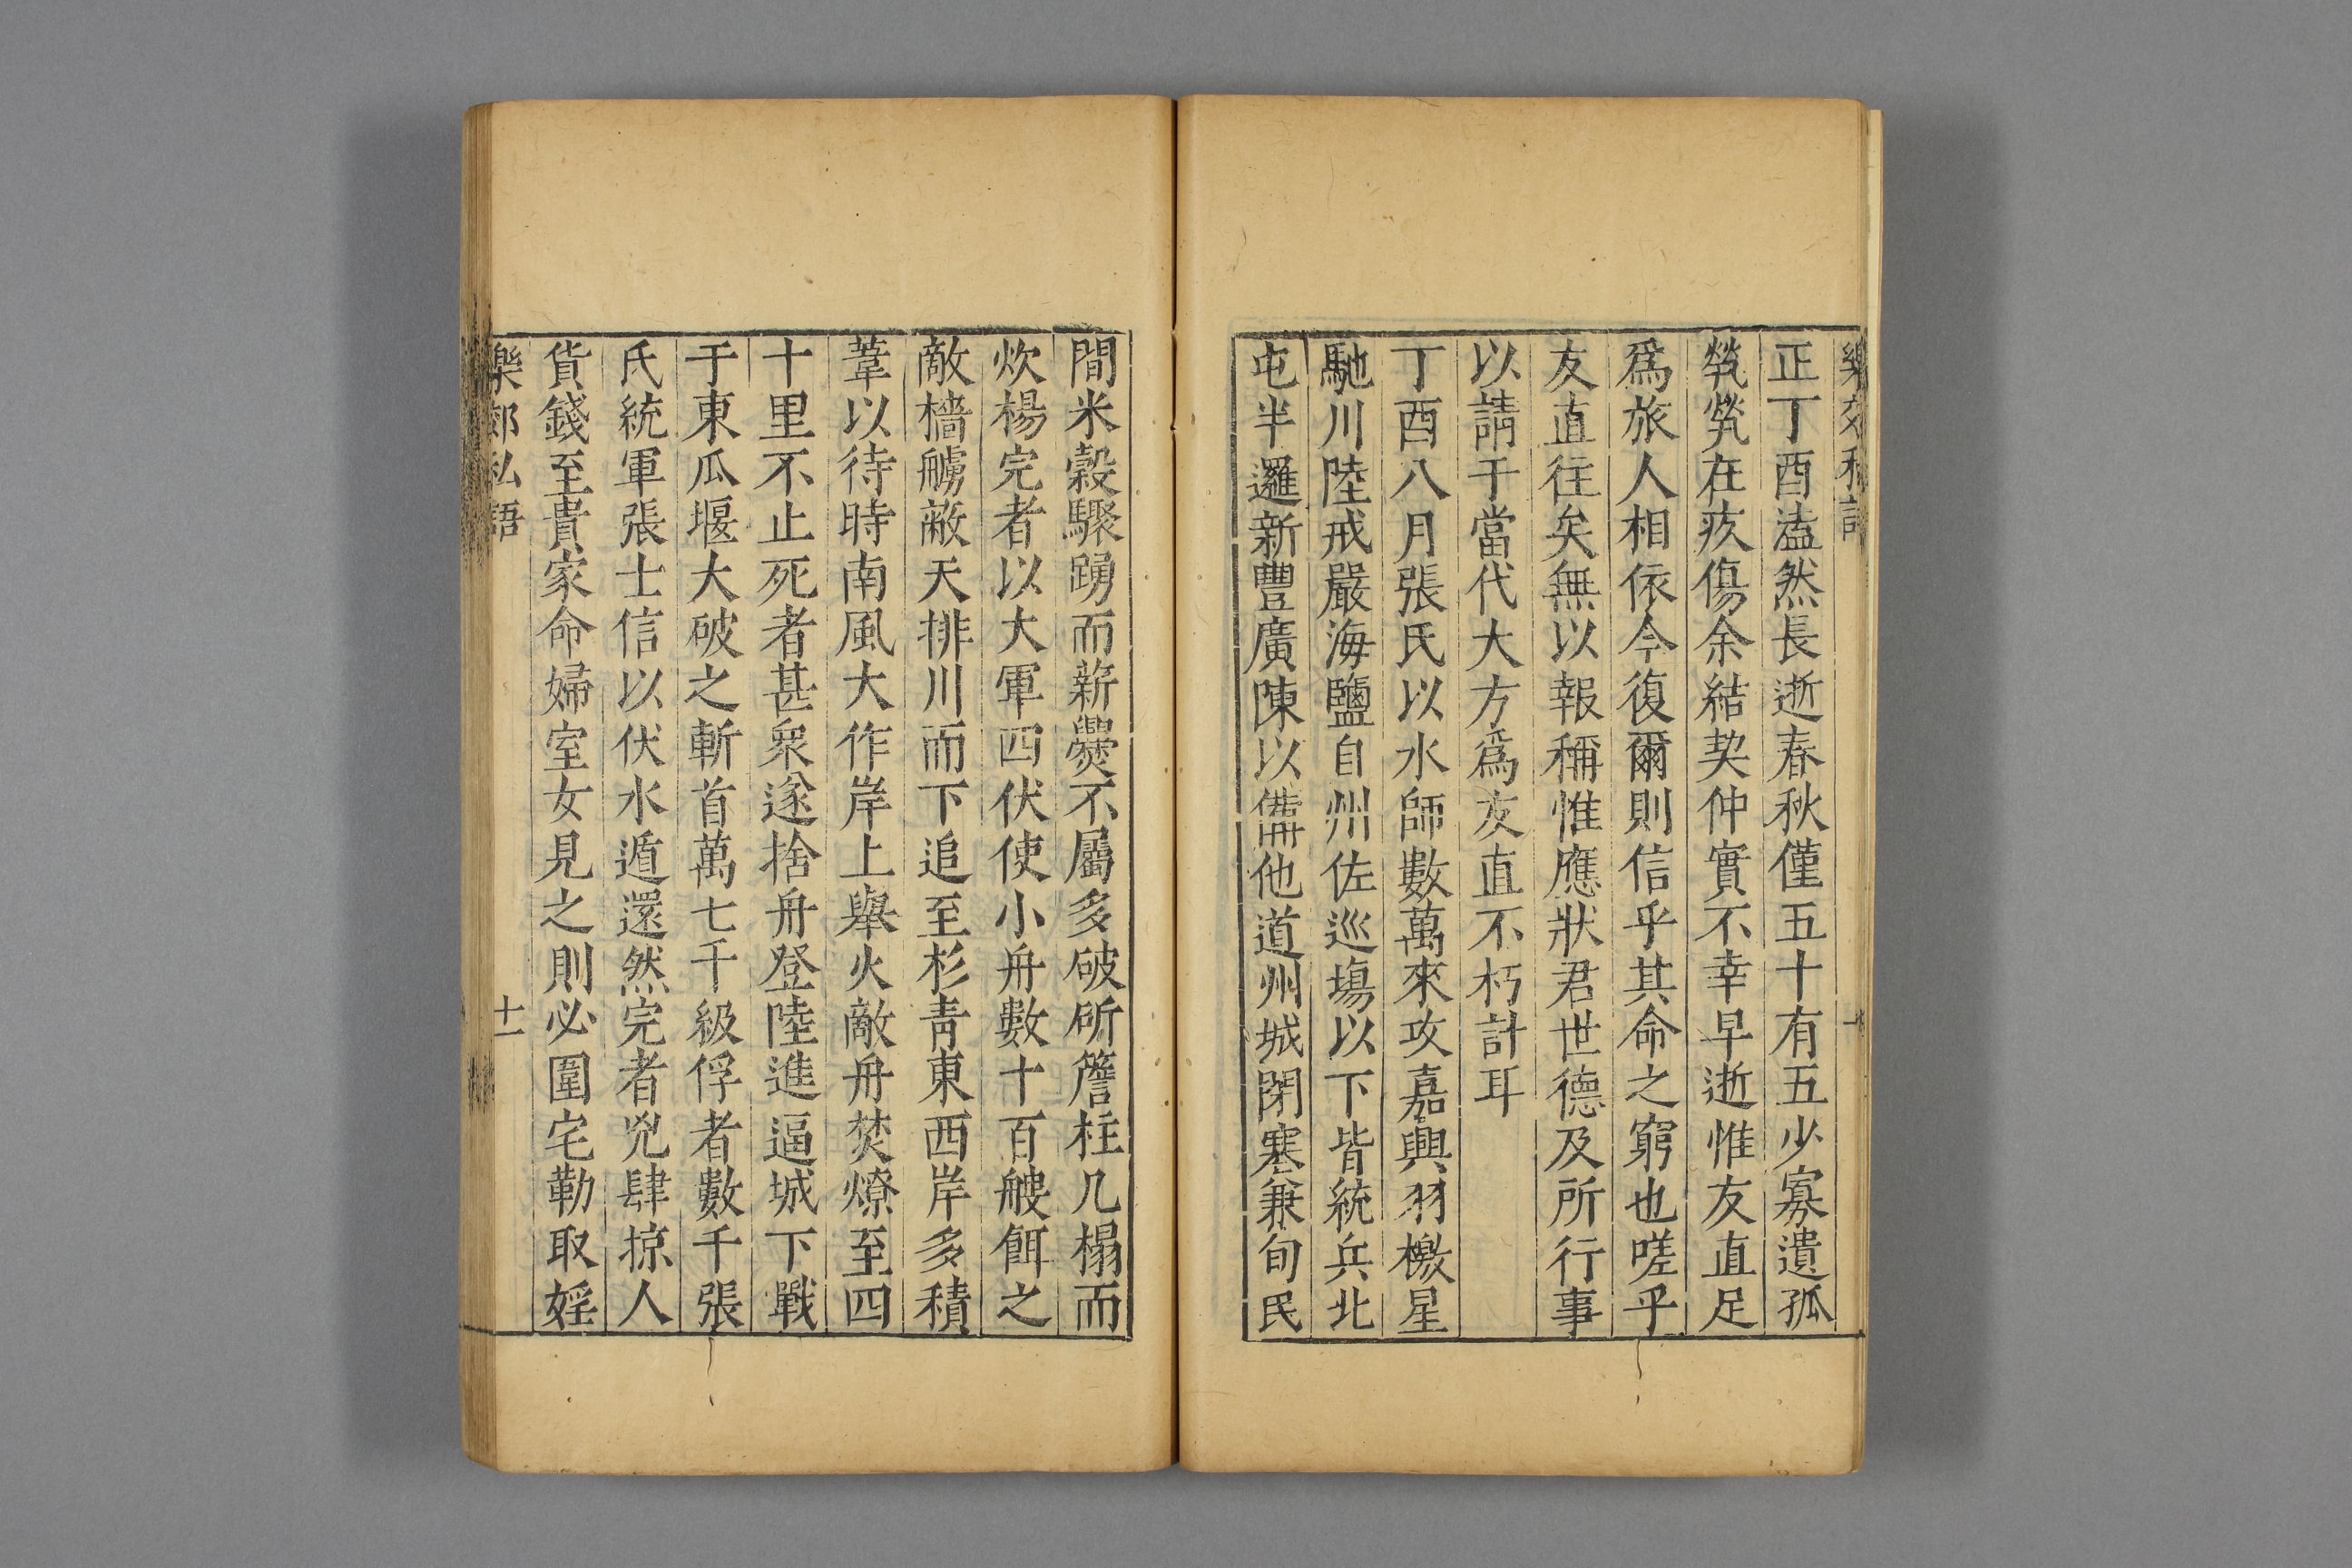 樂郊私語
十
正丁酉溘然長逝春秋僅五十有五少寡遺孤
煢煢在疚傷余結契仲實不幸早逝惟友直足
爲旅人相依今復爾則信乎其命之窮也嗟乎
友直往矣無以報稱惟應狀君世德及所行事
以請于當代大方爲友直不朽計耳
丁酉八月張氏以水師數萬來攻嘉興羽檄星
馳川陸戒嚴海鹽自州佐巡塲以下皆統兵北
屯半邏新豐廣陳以備他道州城閉塞兼旬民
間米穀騣踴而薪爨不屬多破所簷柱几榻而
炊楊完者以大軍四伏使小舟數十百艘餌之
敵檣艣蔽天排川而下追至杉靑東西岸多積
葦以待時南風大作岸上舉火敵舟焚燎至四
十里不止死者甚衆遂捨舟登陸進逼城下戰
于東瓜堰大破之斬首萬七千級俘者數千張
氏統軍張士信以伏水遁還然完者兇肆掠人
貨錢至貴家命婦室女見之則必圍宅勒取婬
樂郊私語
十一